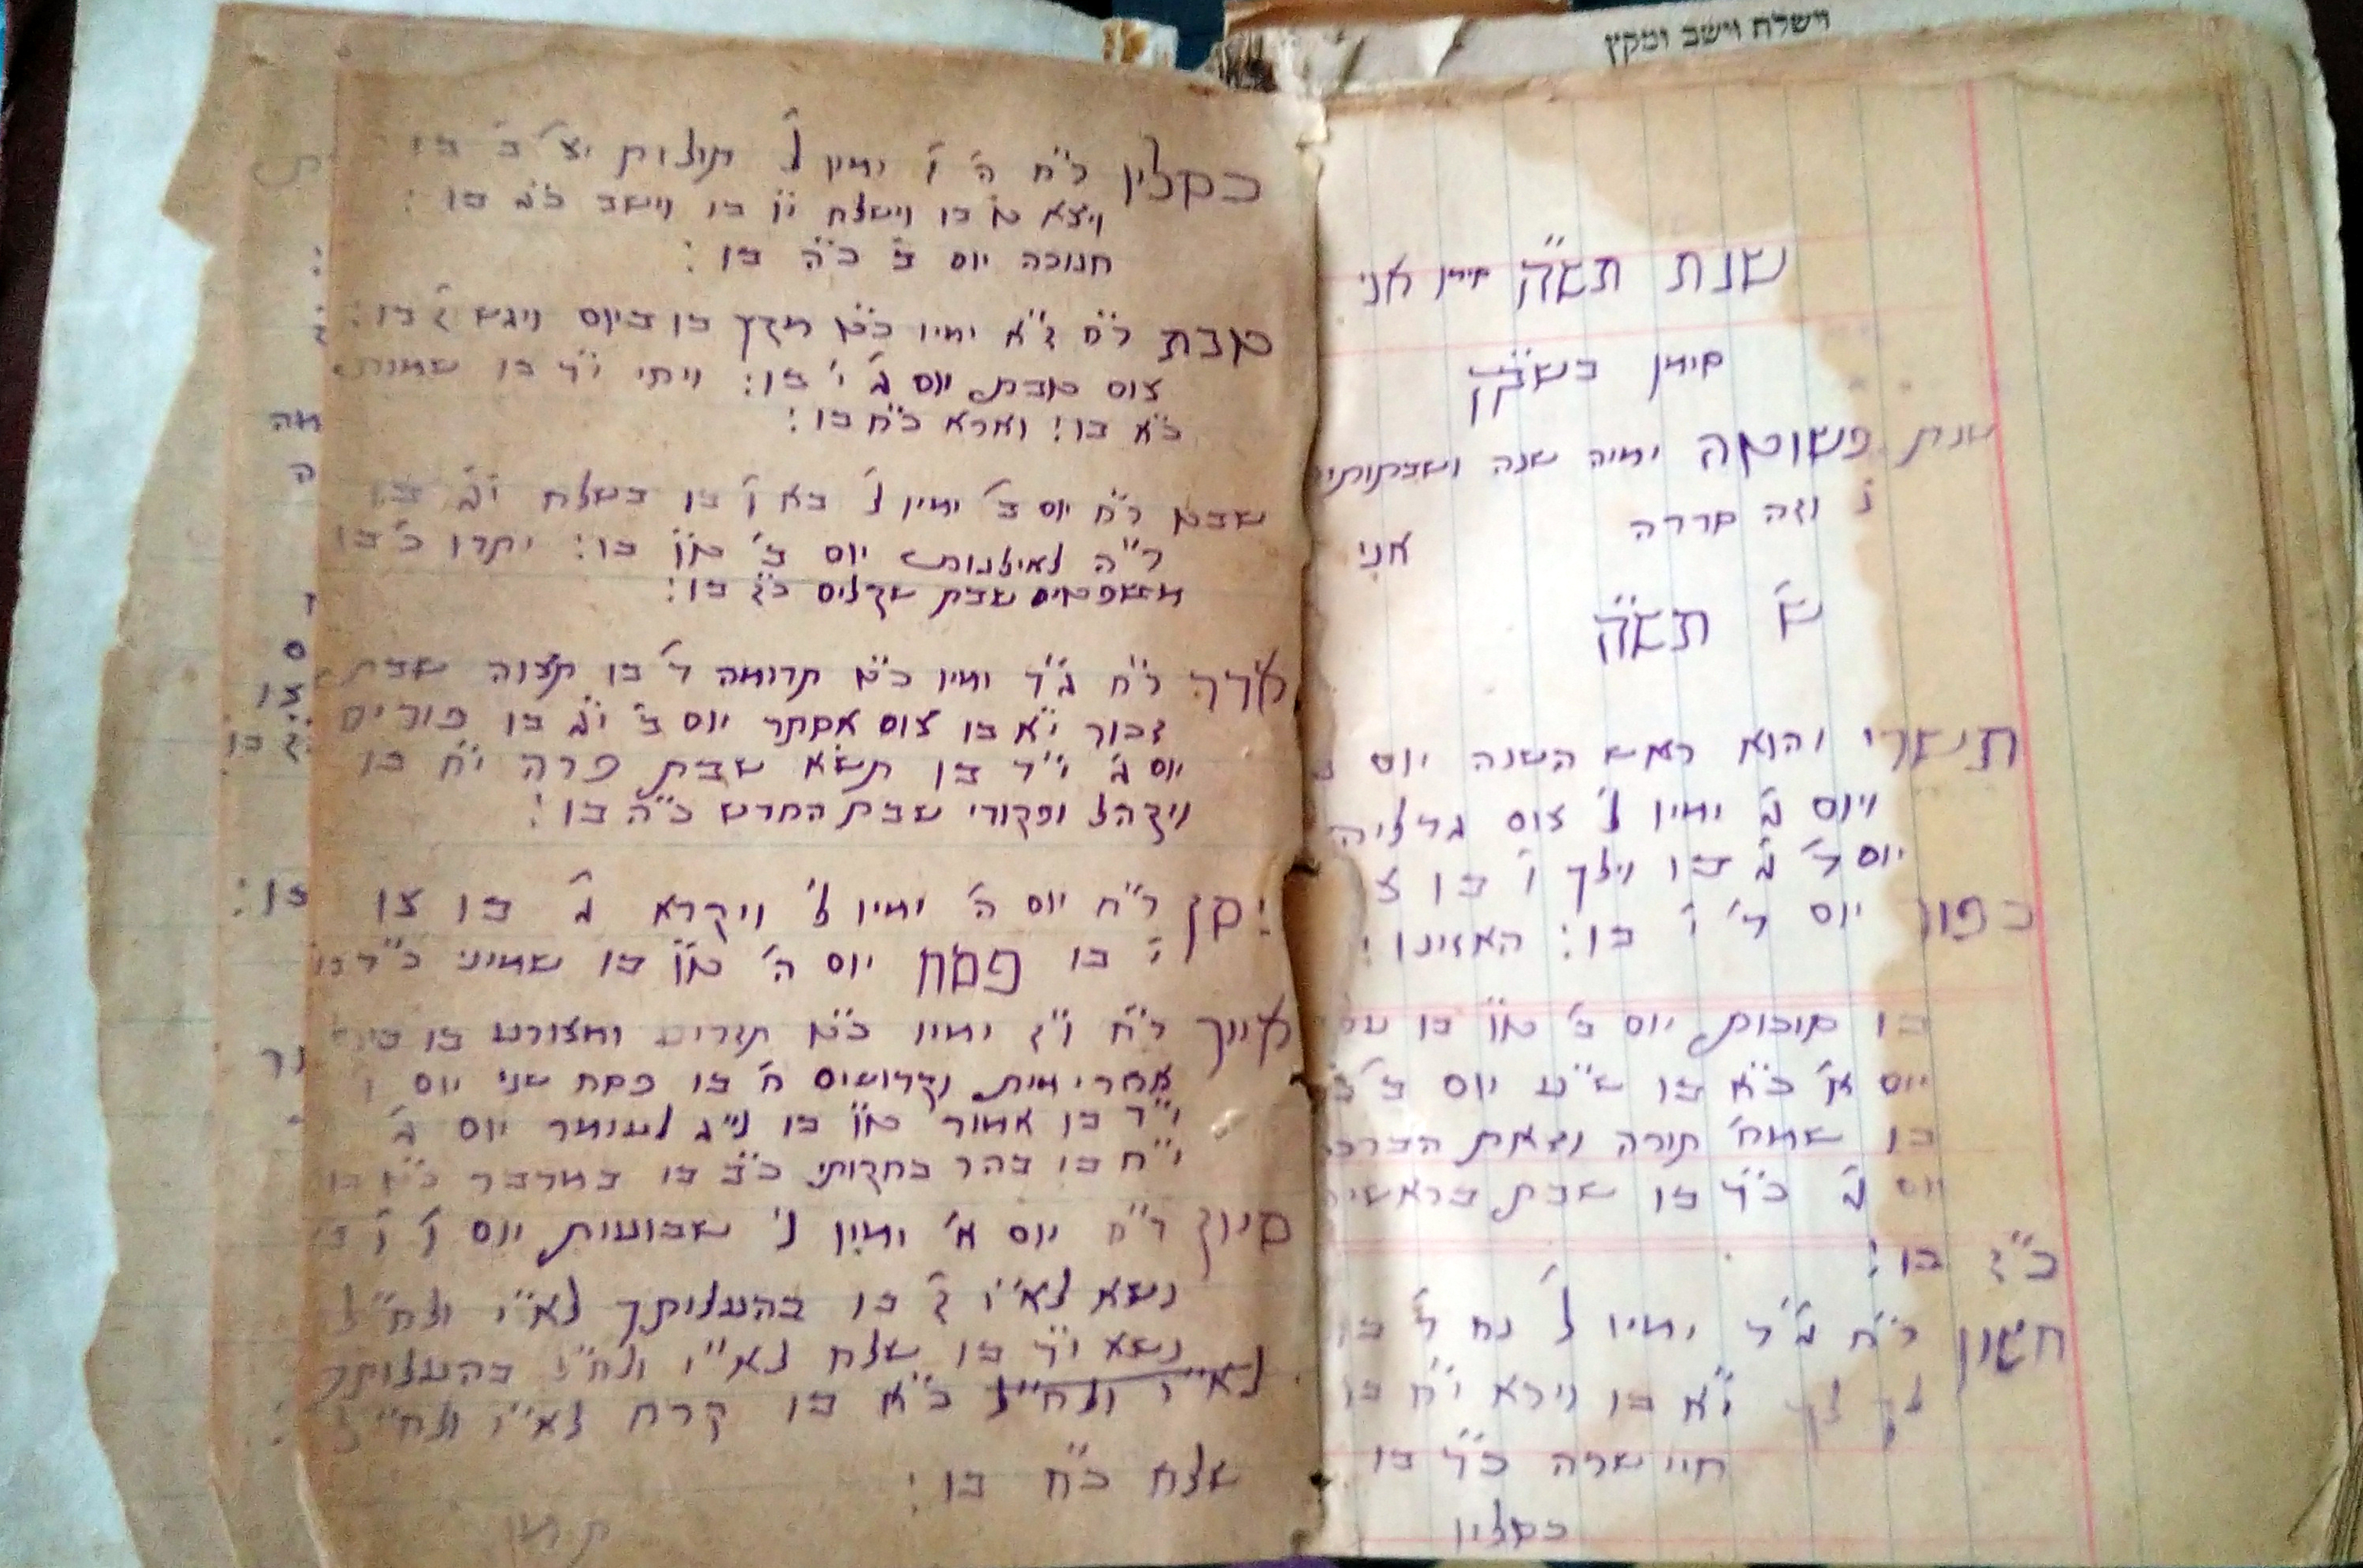 וישלח וישב ומקץ
שנת תשה סימן אני
סימן בשהז
שנת פשוטה ימיה שנה ושבתותיה
נ וזה סדרה אני
ש׳ תש״ה
תישרי והוא ראש השנה יום
ויום ג׳ ימיו ל׳ צום גדליה
יום ד׳ ג׳ בו וילך ו׳ בו
כפור יום ד׳ י׳ בו: האזינו
בו סוכות יום ב׳ ט״ו בו
יום א׳ כ״א בו ש״ע יום ב׳
בו שמח׳ תורה וזאת הברכה
יום ג׳ כ״ד בו שבת בראשית
כ״ז בו:
חשון ר״ח ג״ד ימיו ל׳ נח ד׳ בו
לך לך י״א בו וירא י״ח בו
חיי שרה כ״ד בו
כסלין
כסלין ר״ח ה׳ ו׳ ימיו ל׳ תולדות
ויצא ט׳ בו וישלח י״ו בו וישב כ״ג בו:
חנוכה יום ב׳ כ״ה בו:
טבת ר״ח ז״א ימיו כ״ט מקץ בו ביום ויגש ז׳ בו:
צום טבת יום ג׳ י׳ בו: ויחי י״ד בו שמות
כ״א בו: וארא כ״ח בו:
שבט ר״ח יום ב׳ ימיו ל׳ בא ו׳ בו בשלח י״ג בו
ר״ה לאילנות יום ב׳ ט״ו בו: יתרו כ׳ בו
משפטים שבת שקלים כ״ז בו:
אדר ר״ח ג״ד ימיו כ״ט תרומה ד׳ בו תצוה שבת
זכור י״א בו צום אסתר יום ב׳ י״ג בו פורים
יום ג׳ י״ד בו תשא שבת פרה י״ח בו
ויקהל ופקודי שבת החדש כ״ה בו:
ניסן ר״ח יום ה׳ ימיו ל׳ ויקרא ג׳ בו צו
י׳ בו פסח יום ה׳ ט״ו בו שמיני כ״ד בו
אייר ר״ח ו״ז ימיו כ״ט תזריע ומצורע בו
אחרי מות וקדושים ח׳ בו פסח שני יום ו
י״ד בו אמור ט״ו בו ל״ג לעומר יום ג׳
י״ח בו בהר בחקותי כ״ב בו במדבר כ״ט בו
סיון ר״ח יום א׳ ימיו ל׳ שבועות יום ו׳ ו׳ בו
נשא לא״י ז׳ בו בהעלותך לא״י ולח״ל
נשא י״ד בו שלח לא״י ולח״ל בהעלותך
לא״י ולח״ל כ״א בו קרח לא״י ולח״ל
שלח כ״ח בו: